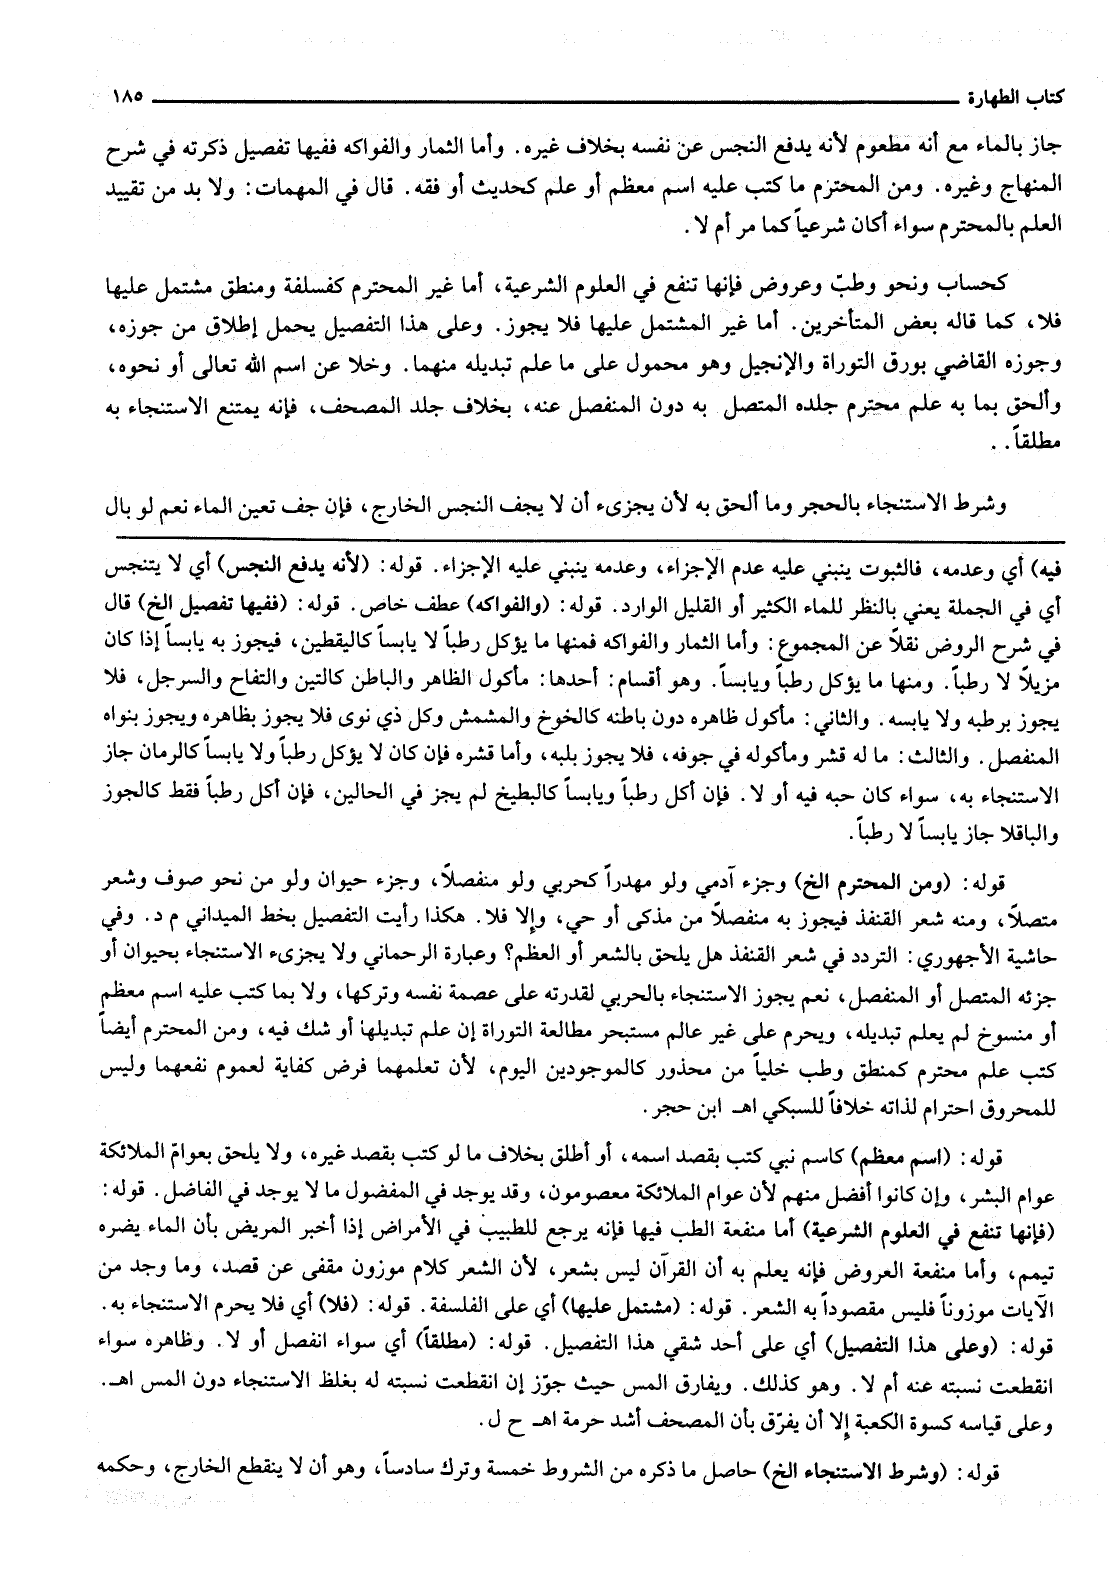 كتاب الطهارة ١٨٥
جاز بالماء مع أنه مطعوم لأنه يدفع النجس عن نفسه بخلاف غيره. وأما الثمار والفواكه ففيها تفصيل ذكرته في شرح
المنهاج وغيره. ومن المحتزم ما كتب عليه اسم معظم أو علم كحديث أو فقه. قال في المهمات: ولا بد من تقييد
العلم بالمحترم سواء أكان شرعياً كما مر أم لا.
كحساب ونحو وطبّ وعروض فإنها تنفع في العلوم الشرعية، أما غير المحترم كفسلفة ومنطق مشتمل عليها
فلا، كما قاله بعض المتأخرين. أما غير المشتمل عليها فلا يجوز. وعلى هذا التفصيل يحمل إطلاق من جوزه،
وجوزه القاضي بورق التوراة والإنجيل وهو محمول على ما علم تبديله منهما. وخلا عن اسم الله تعالى أو نحوه،
وألحق بما به علم محترم جلده المتصل به دون المنفصل عنه، بخلاف جلد المصحف، فإنه يمتنع الاستنجاء به
مطلقاً. .
وشرط الاستنجاء بالحجر وما ألحق به لأن يجزىء أن لا يجف النجس الخارج، فإن جف تعين الماء نعم لو بال
فيه) أي وعدمه، فالثبوت ينبني عليه عدم الإجزاء، وعدمه ينبني عليه الإجزاء. قوله: (لأنه يدفع النجس) أي لا يتنجس
أي في الجملة يعني بالنظر للماء الكثير أو القليل الوارد. قوله: (والفواكه) عطف خاص. قوله: (ففيها تفصيل الخ) قال
في شرح الروض نقلاً عن المجموع: وأما الثمار والفواكه فمنها ما يؤكل رطباً لا يابساً كاليقطين، فيجوز به يابساً إذا كان
مزيلاً لا رطباً. ومنها ما يؤكل رطباً ويابساً. وهو أقسام: أحدها: مأكول الظاهر والباطن كالتين والتفاح والسرجل، فلا
يجوز برطبه ولا يابسه. والثاني: مأكول ظاهره دون باطنه كالخوخ والمشمش وكل ذي نوى فلا يجوز بظاهره ويجوز بنواه
المنفصل. والثالث: ما له قشر ومأكوله في جوفه، فلا يجوز بلبه، وأما قشره فإن كان لا يؤكل رطباً ولا يابساً كالرمان جاز
الاستنجاء به، سواء كان حبه فيه أو لا. فإن أكل رطباً ويابساً كالبطيخ لم يجز في الحالين، فإن أكل رطباً فقط كالجوز
والباقلا جاز يابساً لا رطباً.
قوله: (ومن المحترم الخ) وجزء آدمي ولو مهدراً كحربي ولو منفصلاً، وجزء حيوان ولو من نحو صوف وشعر
متصلاً، ومنه شعر القنفذ فيجوز به منفصلاً من مذكى أو حي، وإلا فلا. هكذا رأيت التفصيل بخط الميداني م د. وفي
حاشية الأجهوري: التردد في شعر القنفذ هل يلحق بالشعر أو العظم؟ وعبارة الرحماني ولا يجزىء الاستنجاء بحيوان أو
جزئه المتصل أو المنفصل، نعم يجوز الاستنجاء بالحربي لقدرته على عصمة نفسه وتركها، ولا بما كتب عليه اسم معظم
أو منسوخ لم يعلم تبديله، ويحرم على غير عالم مستبحر مطالعة التوراة إن علم تبديلها أو شك فيه، ومن المحترم أيضاً
كتب علم محترم كمنطق وطب خلياً من محذور كالموجودين اليوم، لأن تعلمهما فرض كفاية لعموم نفعهما وليس
للمحروق احترام لذاته خلافاً للسبكي اهـ ابن حجر.
قوله: (اسم معظم) كاسم نبي كتب بقصد اسمه، أو أطلق بخلاف ما لو كتب بقصد غيره، ولا يلحق بعوامّ الملائكة
عوام البشر، وإن كانوا أفضل منهم لأن عوام الملائكة معصومون، وقد يوجد في المفضول ما لا يوجد في الفاضل. قوله:
(فإنها تنفع في العلوم الشرعية) أما منفعة الطب فيها فإنه يرجع للطبيب في الأمراض إذا أخبر المريض بأن الماء يضره
تيمم، وأما منفعة العروض فإنه يعلم به أن القرآن ليس بشعر، لأن الشعر كلام موزون مقفى عن قصد، وما وجد من
الآيات موزوناً فليس مقصوداً به الشعر. قوله: (مشتمل عليها) أي على الفلسفة. قوله: (فلا) أي فلا يحرم الاستنجاء به.
قوله: (وعلى هذا التفصيل) أي على أحد شقي هذا التفصيل. قوله: (مطلقاً) أي سواء انفصل أو لا. وظاهره سواء
انقطعت نسبته عنه أم لا. وهو كذلك. ويفارق المس حيث جوّز إن انقطعت نسبته له بغلظ الاستنجاء دون المس اهـ.
وعلى قياسه كسوة الكعبة إلا أن يفرّق بأن المصحف أشد حرمة اهـ ح ل.
قوله: (وشرط الاستنجاء الخ) حاصل ما ذكره من الشروط خمسة وترك سادساً، وهو أن لا ينقطع الخارج، وحكمه